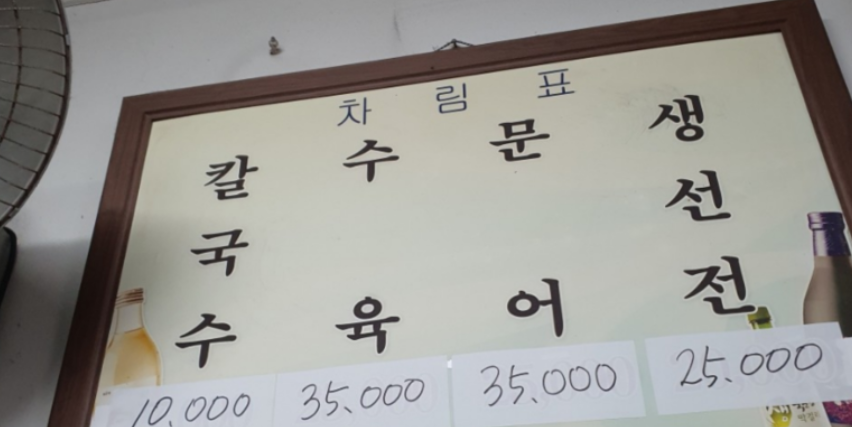 차림표
칼국수
수육
문어
생선전
10,000
35,000
35,000
25,000